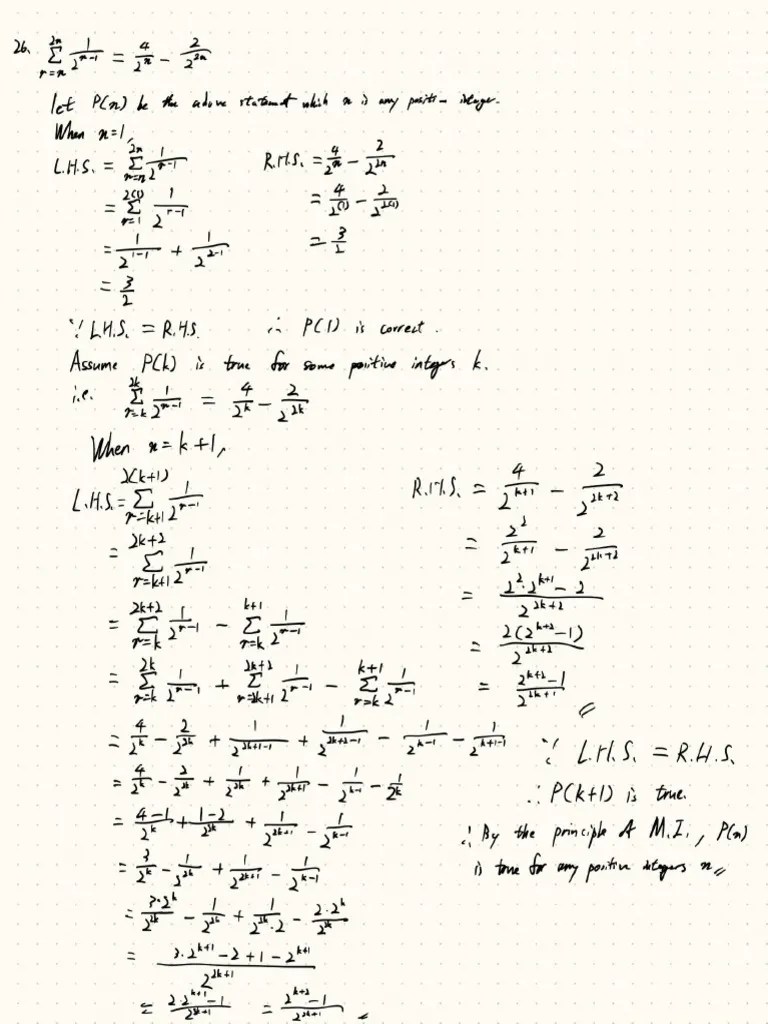 26. \sum_{r=n}^{2n} \frac{1}{2^{r-1}} = \frac{4}{2^n} - \frac{2}{2^{2n}}
let P(n) be the above statement which n is any positive integer.
When n=1,
L.H.S. = \sum_{r=n}^{2n} \frac{1}{2^{r-1}}
= \sum_{r=1}^{2(1)} \frac{1}{2^{r-1}}
= \frac{1}{2^{1-1}} + \frac{1}{2^{2-1}}
= \frac{3}{2}
R.H.S. = \frac{4}{2^n} - \frac{2}{2^{2n}}
= \frac{4}{2^{(1)}} - \frac{2}{2^{2(1)}}
= \frac{3}{2}
∵ L.H.S. = R.H.S. ∴ P(1) is correct.
Assume P(k) is true for some positive integers k.
i.e. \sum_{r=k}^{2k} \frac{1}{2^{r-1}} = \frac{4}{2^k} - \frac{2}{2^{2k}}
When n=k+1,
L.H.S. = \sum_{r=k+1}^{2(k+1)} \frac{1}{2^{r-1}}
= \sum_{r=k+1}^{2k+2} \frac{1}{2^{r-1}}
= \sum_{r=k}^{2k+2} \frac{1}{2^{r-1}} - \sum_{r=k}^{k+1} \frac{1}{2^{r-1}}
= \sum_{r=k}^{2k} \frac{1}{2^{r-1}} + \sum_{r=2k+1}^{2k+2} \frac{1}{2^{r-1}} - \sum_{r=k}^{k+1} \frac{1}{2^{r-1}}
= \frac{4}{2^k} - \frac{2}{2^{2k}} + \frac{1}{2^{2k+1-1}} + \frac{1}{2^{2k+2-1}} - \frac{1}{2^{k-1}} - \frac{1}{2^{k+1-1}}
= \frac{4}{2^k} - \frac{2}{2^{2k}} + \frac{1}{2^{2k}} + \frac{1}{2^{2k+1}} - \frac{1}{2^{k-1}} - \frac{1}{2^k}
= \frac{4-1}{2^k} + \frac{1-2}{2^{2k}} + \frac{1}{2^{2k+1}} - \frac{1}{2^{k-1}}
= \frac{3}{2^k} - \frac{1}{2^{2k}} + \frac{1}{2^{2k+1}} - \frac{1}{2^{k-1}}
= \frac{3·2^k}{2^{2k}} - \frac{1}{2^{2k}} + \frac{1}{2^{2k}·2} - \frac{2·2^k}{2^{2k}}
= \frac{3·2^{k+1} - 2 + 1 - 2^{k+1}}{2^{2k+1}}
= \frac{2·2^{k+1} - 1}{2^{2k+1}} = \frac{2^{k+2} - 1}{2^{2k+1}}
R.H.S. = \frac{4}{2^{k+1}} - \frac{2}{2^{2k+2}}
= \frac{2^2}{2^{k+1}} - \frac{2}{2^{2k+2}}
= \frac{2^2·2^{k+1} - 2}{2^{2k+2}}
= \frac{2(2^{k+2} - 1)}{2^{2k+2}}
= \frac{2^{k+2} - 1}{2^{2k+1}}
∵ L.H.S. = R.H.S.
∴ P(k+1) is true.
∴ By the principle of M.I., P(n)
is true for any positive integers n